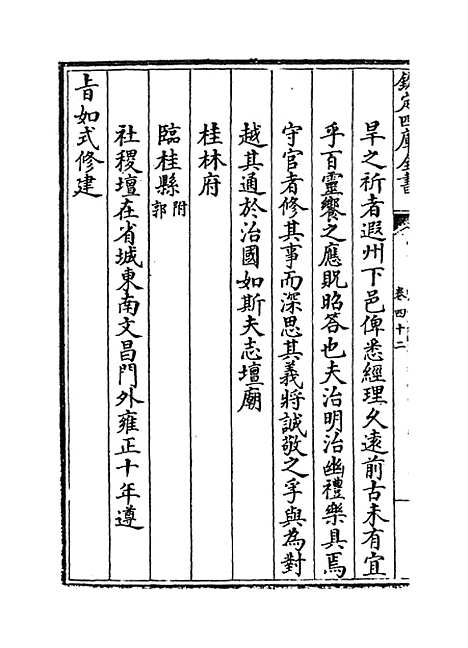 欽定四庫全書
卷四十二
旱之祈者遐州下邑俾悉經理久遠前古未有宜
乎百靈饗之應貺昭答也夫治明治幽禮樂具焉
守官者修其事而深思其義將誠敬之孚與為對
越其通於治國如斯夫志壇廟
桂林府
臨桂縣附郭
社稷壇在省城東南文昌門外雍正十年遵
旨如式修建